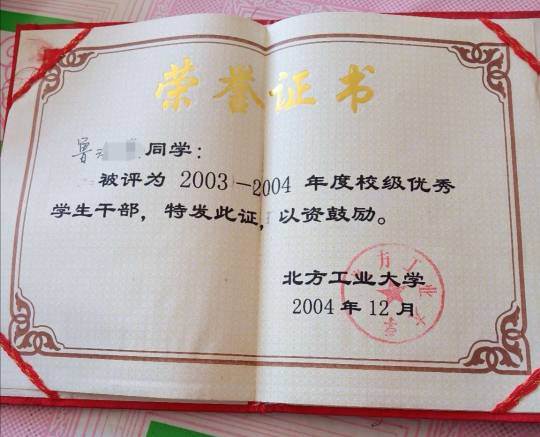 荣誉证书
鲁 同学：
被评为 2003—2004 年度校级优秀
学生干部，特发此证，以资鼓励。
北方工业大学
2004 年 12 月